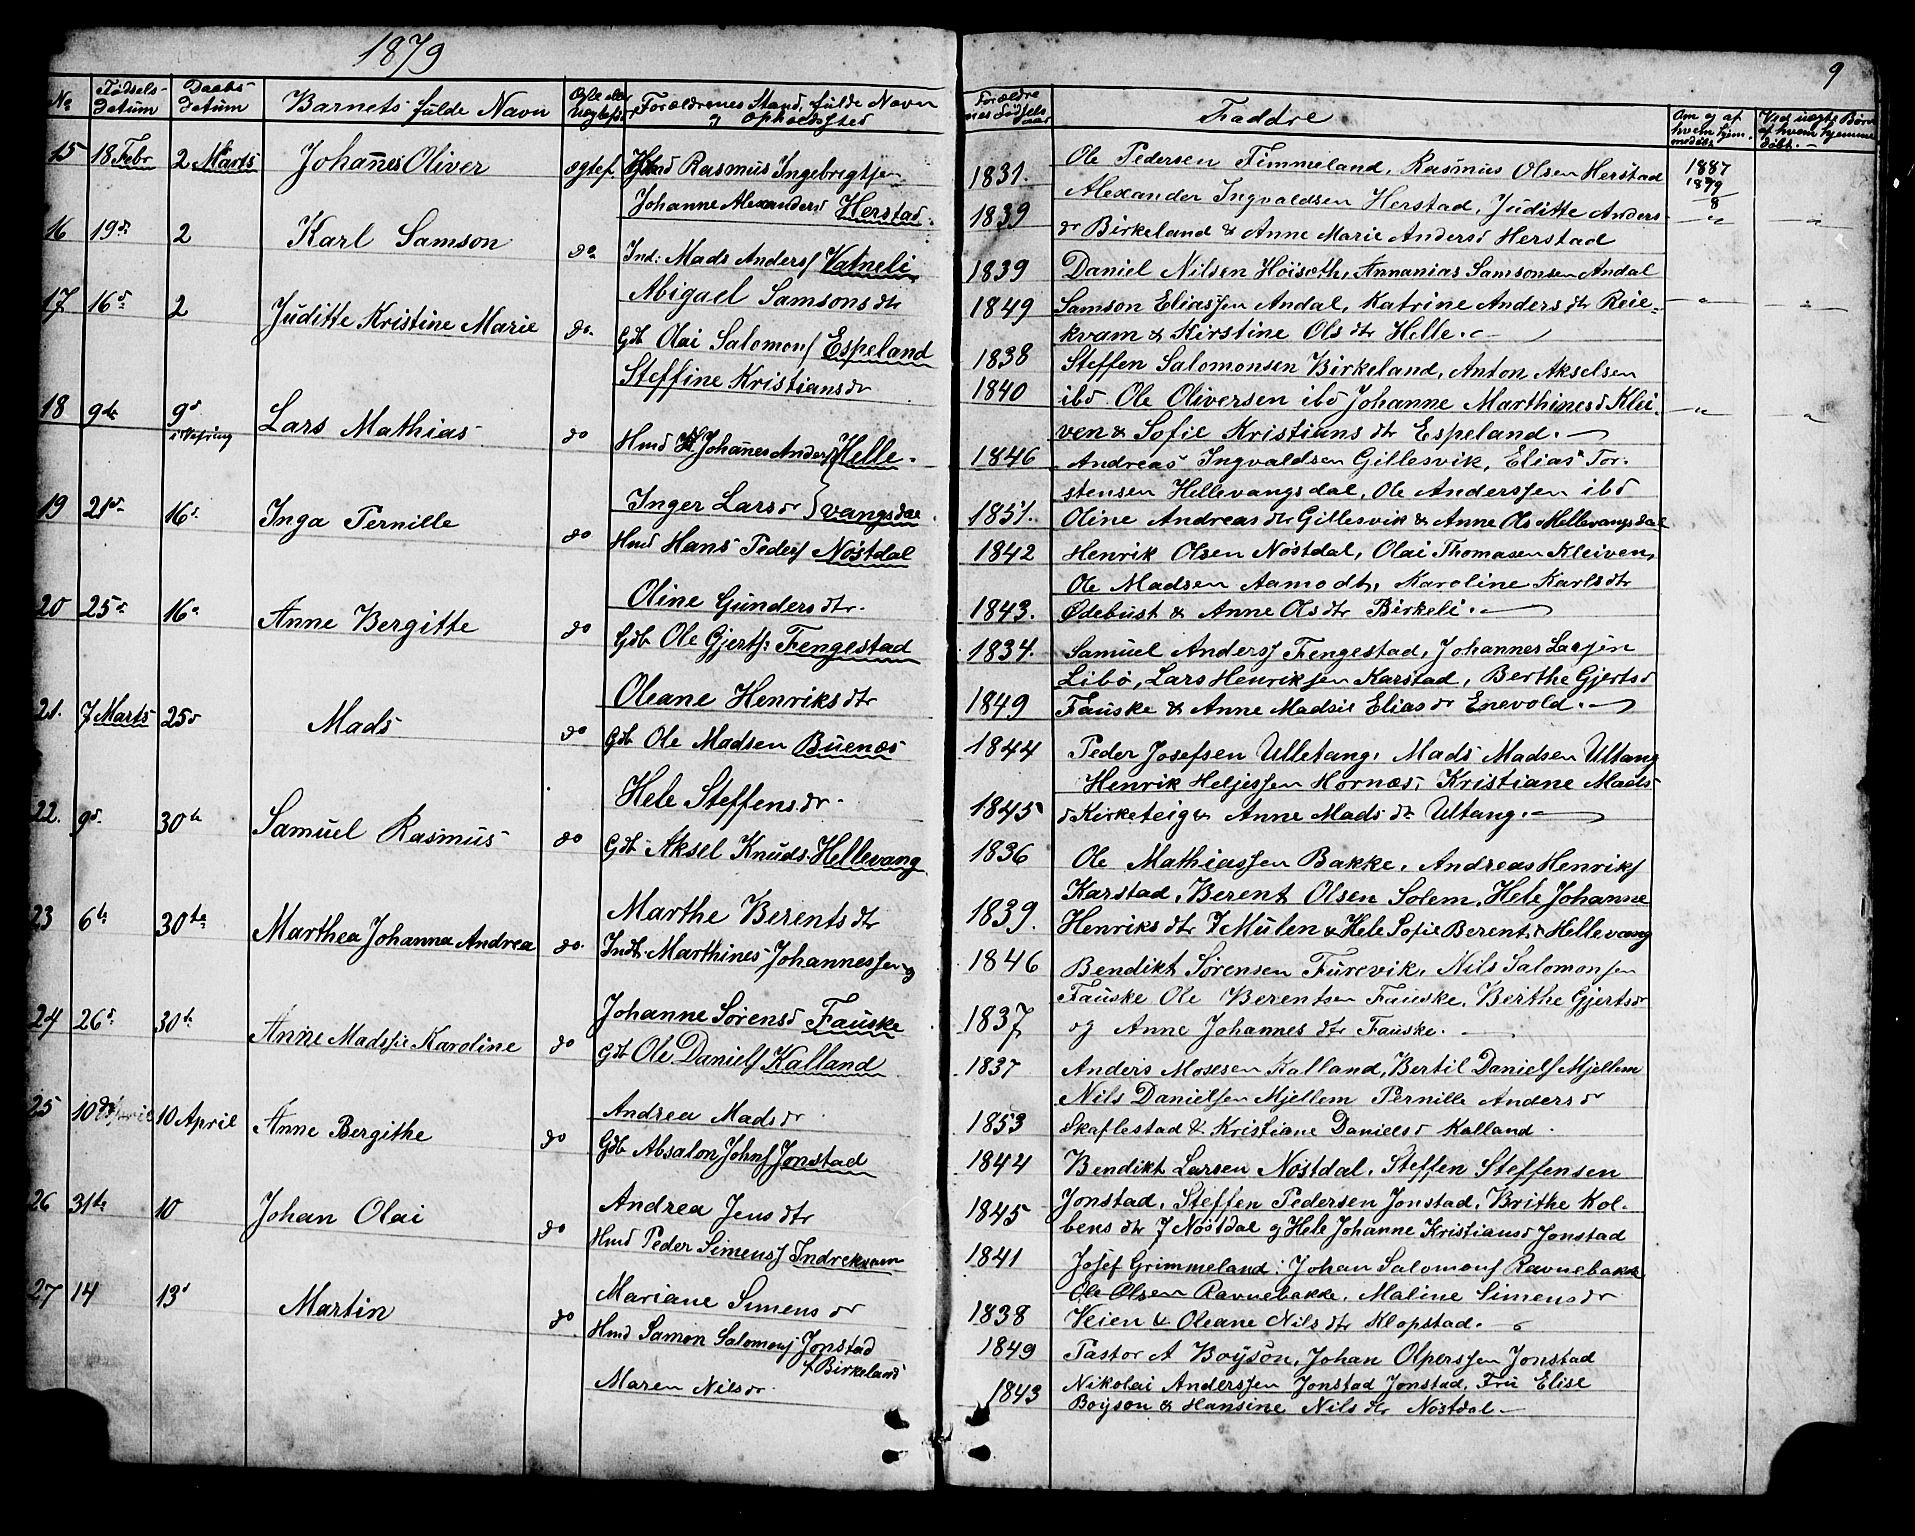 1879
9
No Fødsels-datum Daabs-datum Barnets fulde Navn Ægte eller Uægtef. Forældrenes Stand, fulde Navn og Opholdssted
Forældrenes Fødselsaar Faddre Om og af hvem hjemmedøbt Ved uægte Børn af hvem hjemmedøbt
15 18 Febr 2 Marts Johannes Oliver ægtef. Hmd Rasmus Ingebrigtsen
Johanne Alexandersd Herstad
1831. Ole Pedersen Fimmeland, Rasmus Olsen Herstad
Alexander Ingvaldsen Herstad, Juditte Anders-
1839 dr Birkeland & Anne Marie Andersd Herstad
1887
1879
8
16 19de 2 Karl Samson do Ind: Mads Anders Vatneli
Abigael Samsonsdtr
1839 Daniel Nilsen Höiseth, Annanias Samsonsen Andal
1849 Samson Eliassen Andal, Katrine Andersdtr Reie-
kvam & Kirstine Olsdtr Helle.
17 16d 2 Juditte Kristine Marie do. Gdb Olai Salomons Espeland
Steffine Kristiansdr
1838 Steffen Salomonsen Birkeland, Anton Akselsen
1840 ibd Ole Oliversen ibd Johanne Marthinesd Klei-
ven & Sofie Kristiansdtr Espeland.
18 9de 9d i Vefring Lars Mathias do Hmd Johannes Anders Helle-
Inger Larsdr vangsdal
1846 Andreas Ingvaldsen Gillesvik, Elias Tor-
stensen Hellevangsdal, Ole Anderssen ibd
1851. Oline Andreasdtr Gillesvik & Anne Olsd Hellevangsdal
19 21de 16d Inga Pernille do Hmd Hans Peders Nöstdal
Oline Gundersdtr.
1842 Henrik Olsen Nöstdal, Olai Thomasen Kleiven,
Ole Madsen Aamodt, Karoline Karlsdtr
1843. Ødebust & Anne Olsdtr Birkeli.
20 25d 16d Anne Bergitte do Gdb Ole Gjerts: Fengestad
Oleane Henriksdtr
1834. Samuel Anders Fengestad, Johannes Larsen
Libö, Lars Henriksen Karstad, Berthe Gjertsd
1849 Fauske & Anne Madsie Eliasdr Enevold.
21. 7 Marts 25d Mads do Gdb Ole Madsen Buenæs
Hele Steffensdr.
1844 Peder Josefsen Ulletang, Mads Madsen Ultang
Henrik Heljessen Hornæs, Kristiane Mads-
1845 d Kirketeig & Anne Madsdtr Ultang.
22. 9d. 30te Samuel Rasmus do Gdb. Aksel Knuds. Hellevang
Marthe Berentsdtr
1836 Ole Mathiassen Bakke, Andreas Henriks
Karstad, Berent Olsen Solem, Hele Johanne
1839. Henriksdtr Mulen & Hele Sofie Berentsd Hellevang
23 6te 30te Marthea Johanna Andrea do. Indt. Marthines Johannessen og
Johanne Sörensd Fauske
1846 Bendikt Sørensen Furevik, Nils Salomonsen
Fauske Ole Berentsen Fauske, Berthe Gjertsdr
1837 og Anne Johannesdtr Fauske.
24 26d 30te Anne Madssie Karoline do Gdb Ole Daniels Kalland
Andrea Madsdr
1837 Anders Mosesen Kalland, Bertil Daniels Mjellem
Nils Danielsen Mjellem Pernille Andersdr
1853 Skaflestad & Kristiane Danielsd Kalland.
25 10de April 10 April Anne Bergithe do Gdb Absalon Johns Jonstad
Andrea Jensdtr
1844 Bendikt Larsen Nöstdal, Steffen Steffensen
1845 Jonstad, Steffen Pedersen Jonstad, Brithe Kol-
bensdtr Nöstdal og Hele Johanne Kristiansd Jonstad
26 31te 10 Johan Olai do Hmd Peder Simens Indrekvam
Mariane Simensdr
1841 Josef Grimmeland: Johan Salomons Ravnebakke
Ole Olsen Ravnebakke, Maline Simensdr
1838 Veien & Oleane Nilsdtr Klopstad.
27 14 13d Martin do Hmd Samon Salomons Jonstad
f Birkeland
Maren Nilsdr.
1849 Pastor A Boÿson, Johan Olperssen Jonstad
1843 Nikolai Anderssen Jonstad Jonstad, Fru Elise
Boÿson & Hansine Nilsdtr Nöstdal